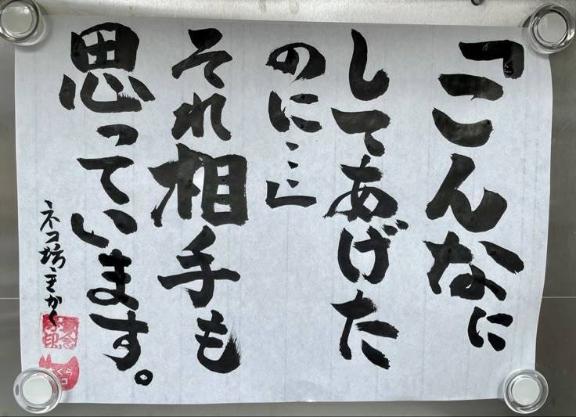 「こんなに
してあげた
のに…」
それ相手も
思っています。
ネコ坊主かく